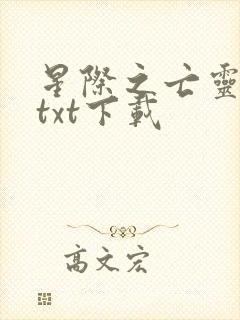 星際之亡靈
txt下載
高文宏